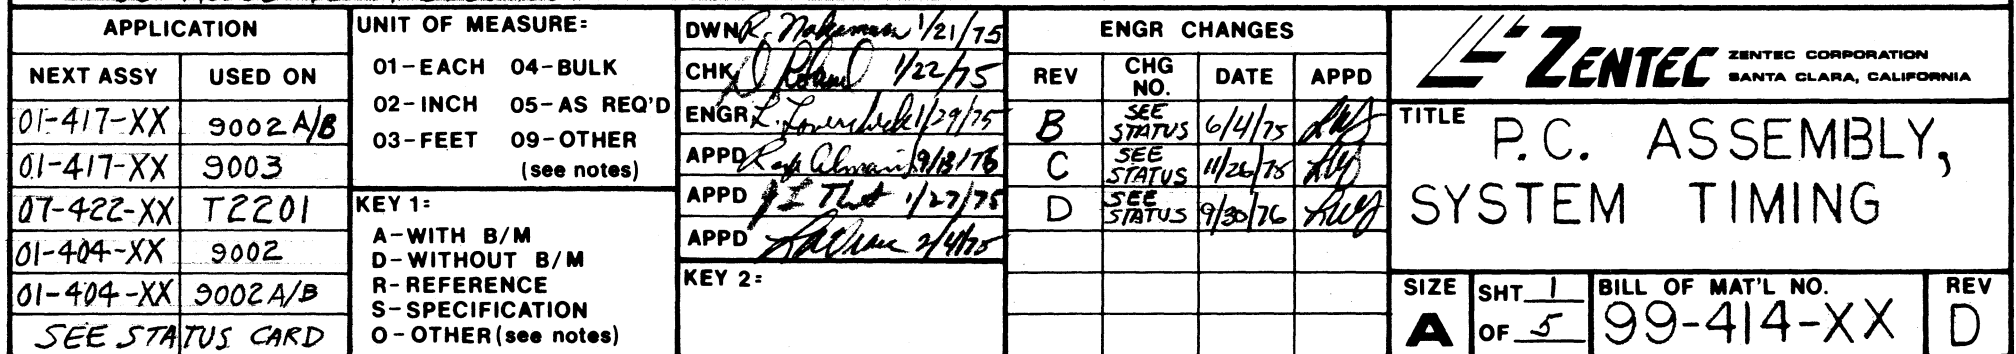 APPLICATION
NEXT ASSY USED ON
01-417-XX 9002 A/B
01-417-XX 9003
07-422-XX T2201
01-404-XX 9002
01-404-XX 9002A/B
SEE STATUS CARD
UNIT OF MEASURE:
01-EACH 04-BULK
02-INCH 05-AS REQ'D
03-FEET 09-OTHER
(see notes)
KEY 1:
A-WITH B/M
D-WITHOUT B/M
R-REFERENCE
S-SPECIFICATION
O-OTHER (see notes)
DWN R. 1/21/75
CHK D 1/22/75
ENGR L. 1/29/75
APPD
APPD 1/27/75
APPD 2/4/75
KEY 2:
ENGR CHANGES
REV CHG NO. DATE APPD
B SEE STATUS 6/4/75
C SEE STATUS 11/26/75
D SEE STATUS 9/30/76
ZENTEC ZENTEC CORPORATION
SANTA CLARA, CALIFORNIA
TITLE P.C. ASSEMBLY,
SYSTEM TIMING
SIZE A
SHT 1
OF 5
BILL OF MAT'L NO.
99-414-XX
REV
D